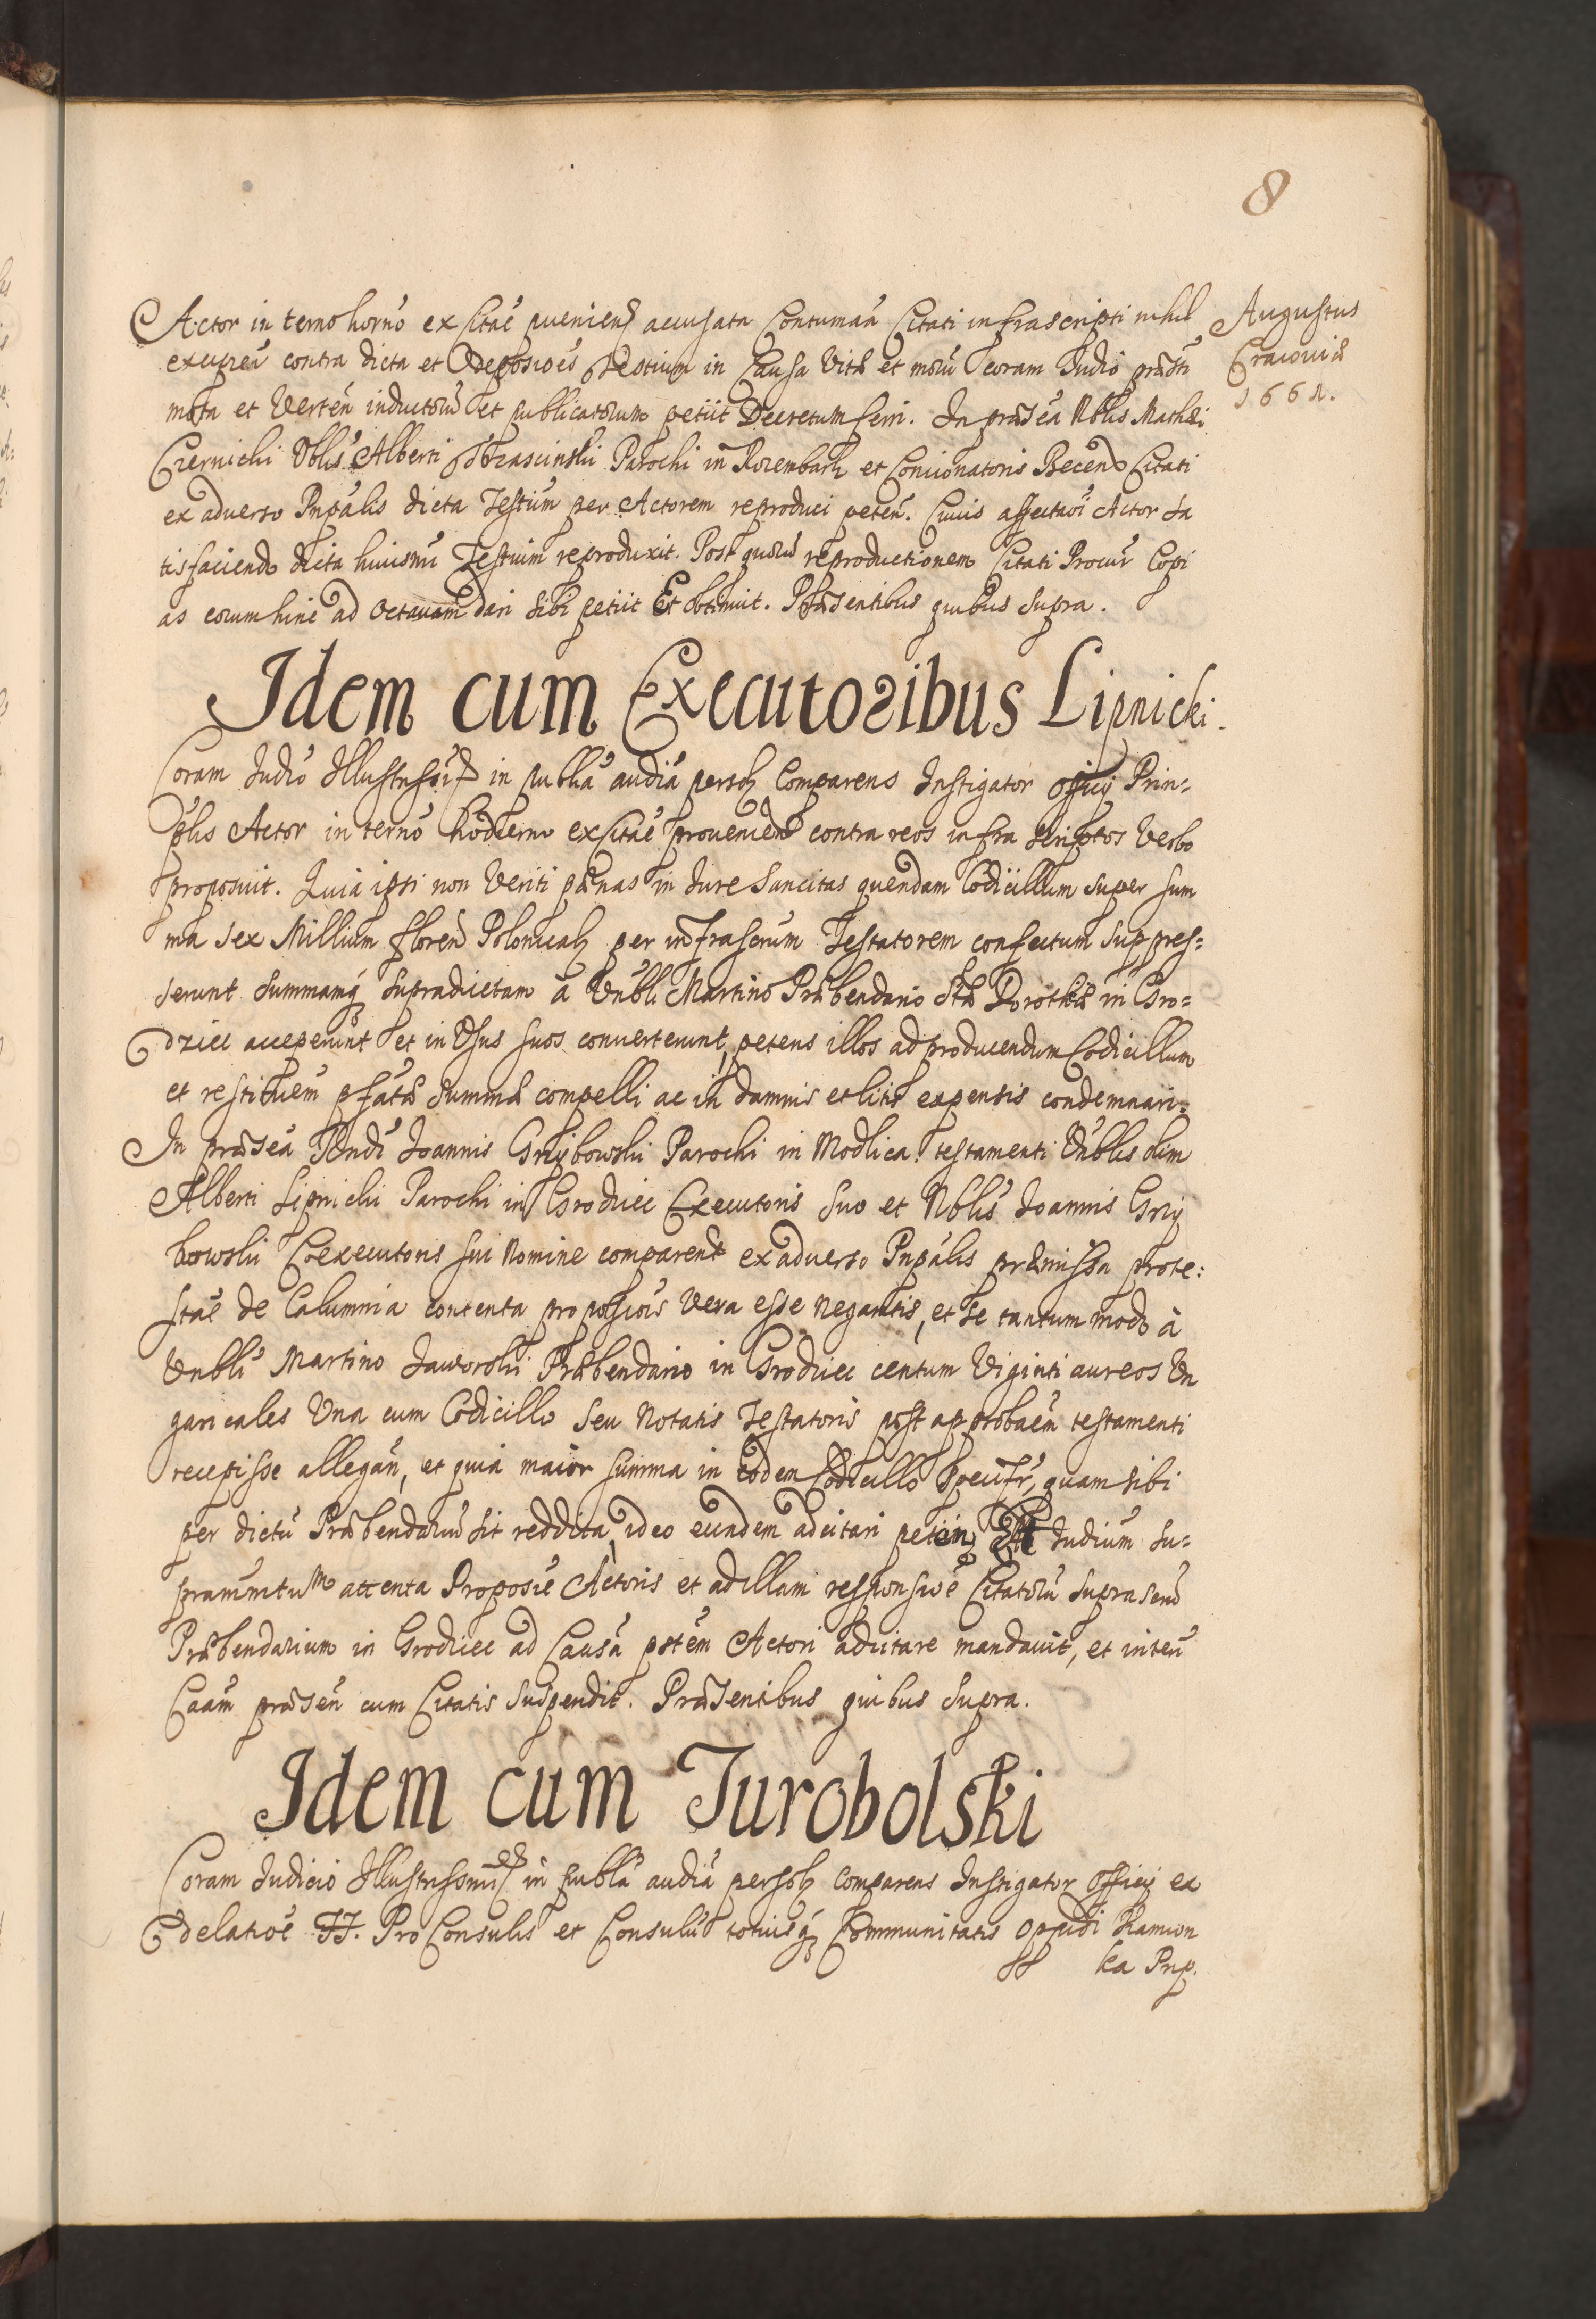 8
Augustus
Cracoviæ
1661.
Actor in termo horno ex Citãe pueniens accusata Contumaã Citati infrascripti nihil
excipieñ contra dicta et Deposioẽs Testium in Causa Vitæ et morũ coram Judiõ præsti
mota et Verteñ inductorũ et publicatorum petiit Decretum ferri. In præseã Nblis Mathæi
Czernichi Vblis Alberti Parochi in Rozembark et Concionatoris Becens Citati
ex adverso Pnpalis dicta Testium per Actorem reproduci peteñ. Cuius affectaoĩ Actor sa
tisfaciendo dicta huiusmõi Testium reproduxit. Post quorũ reproductionem Citati Procur Copi
as eorum hinc ad Octavam dari sibi petiit Et obtinuit. Præsentibus quibus supra.
Idem cum Executoribus Lipnicki.
Coram Judiõ Illustrissĩ in publiã audiã persolz Comparens Instigator officij Prin-
plis Actor in termo hodierno ex Citãe proveniens contra reos infra scriptos Verbo
proposuit. Quia ipsi non Veriti pænas in Jure Sancitas quendam Codicillum super sum
ma sex Millium floreñ Polonicalz per infrascrium Testatorem confectum suppres-
serunt summamq supradictam a Vnbli Martino Præbendario Stæ Dorotheæ in Gro-
dziec acceperunt et in Vsus suos converterunt, petens illos ad producendum Codicillum
et restituem pfatæ summæ compelli ac in damnis et litis expensis condemnari.
In præseã Rndi Joannis Grzybowski Parochi in Modlica testamenti Vnblis olim
Alberti Lipnicki Parochi in Grodziec Executoris Suo et Nblis Joannis Grzy
bowski Coexecutoris sui Nomine comparent ex adverso Pnpalis præmissa prote:
stãe de Calumnia contenta propossiois Vera esse negantis, et se tantum modo à
Vnbli Martino Jaworski Præbendario in Grodziec centum Viginti aureos Vn
garicales Vna cum Codicillo seu Notatis Testatoris post approbaẽm testamenti
recepisse allegañ, et quia maior summa in eodem Codicillo specifr, quam sibi
per dictũ Præbendariũ sit reddita, ideo eundem adcitari petiin Judium su-
pranmtum attenta Proposiẽ Actoris et ad illam responsiõe Citatorũ suprascri
Præbendarium in Grodziec ad Causã pstẽm Actori adcitare mandavit, et interi
Caam præseñ cum Citatis suspendit. Præsentibus quibus supra.
Idem cum Turobolski
Coram Judicio Illustrissimi in publã audiã persolz comparens Instigator officij ex
delatioẽ FF. Pro Consulis et Consulũ totiusq Communitatis oppidi Kamion
ka Pnp.